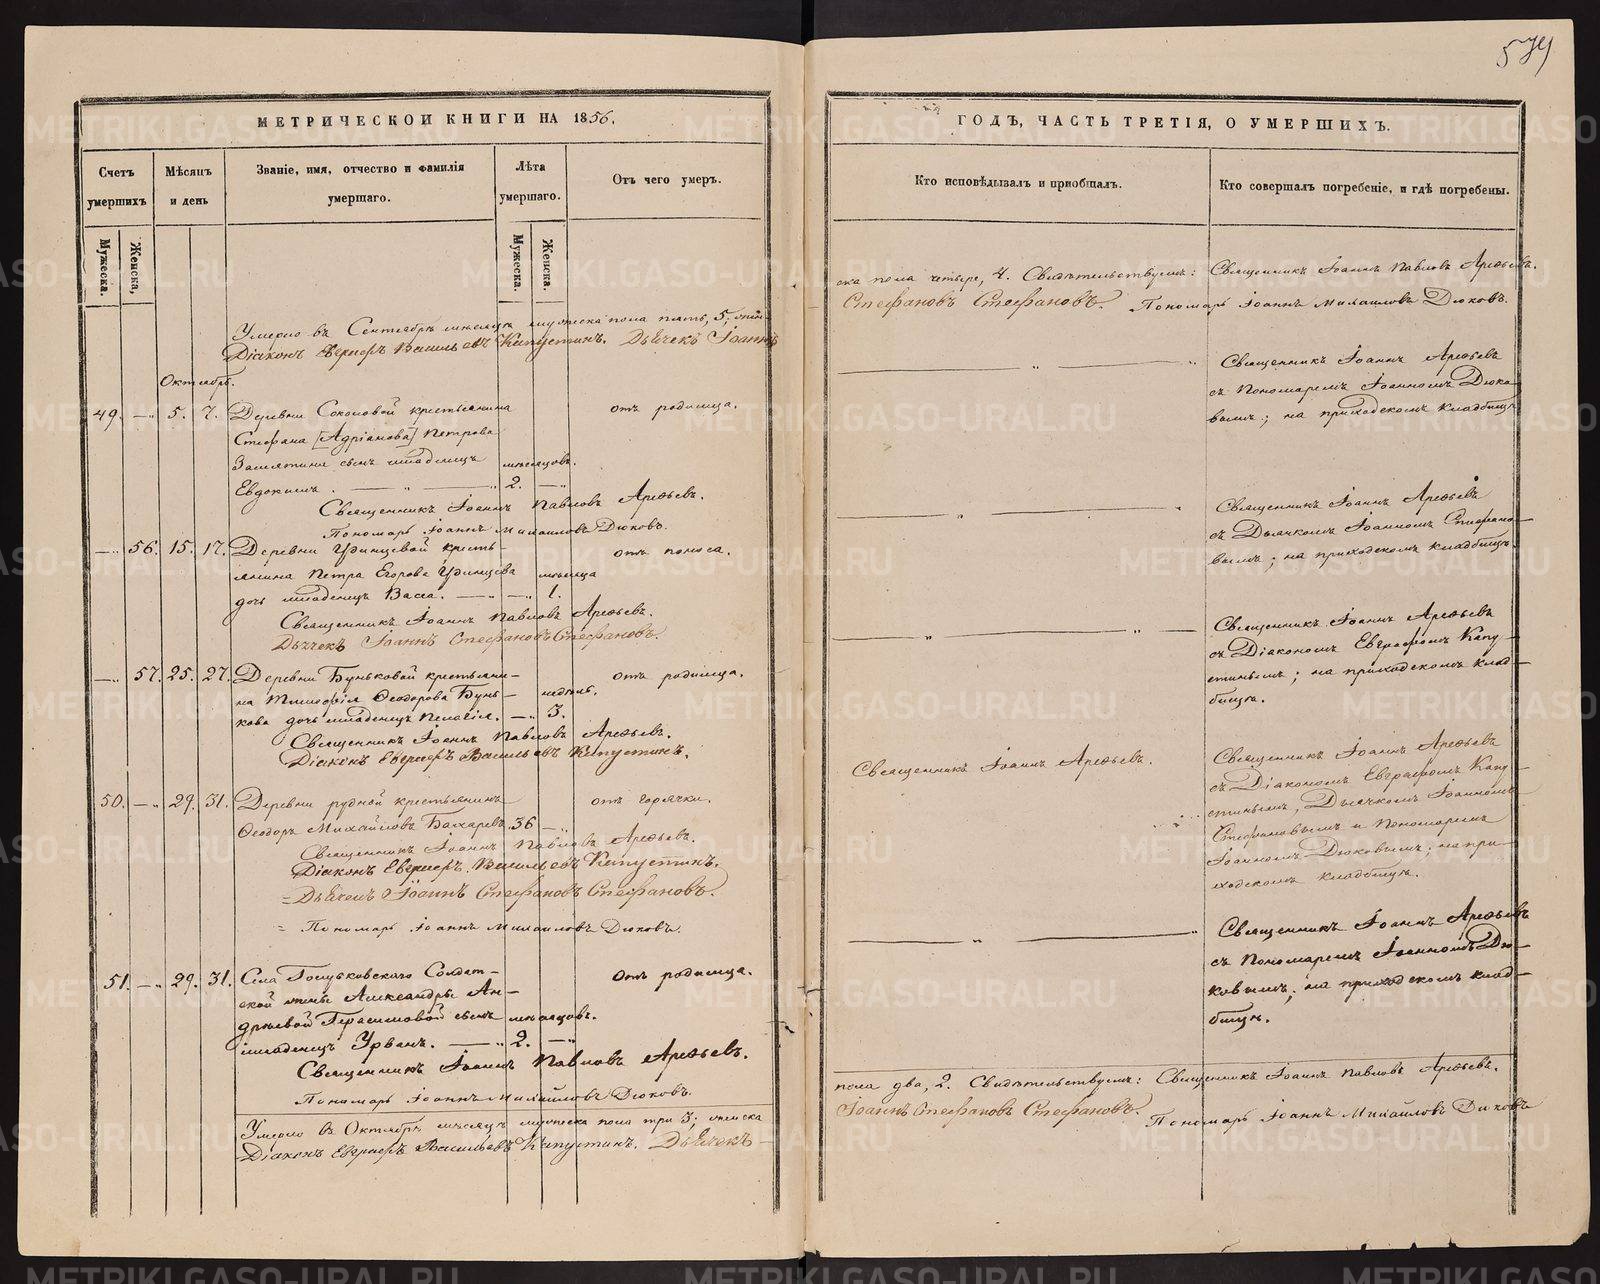 574
МЕТРИЧЕСКОЙ КНИГИ НА 1856.
Счетъ умершихъ
Мѣсяцъ и день
Званіе, имя, отчество и фамилія умершаго.
Лѣта умершаго.
Отъ чего умеръ.
Мужеска.
Женска.
Мужеска.
Женска.
Умерло въ Сентябрѣ мѣсяцѣ мужеска пола пять, 5, жен-
Діаконъ Евграфъ Васильевъ Капустинъ. Дьячекъ Іоаннъ
Октябрь.
49. — 5. 7. Деревни Соколовой крестьянина отъ родимца.
Стефана [Адріанова] Петрова
Замятина сынъ младенецъ мѣсяцовъ.
Евдокимъ. — „ — 2. —
Священникъ Іоаннъ Павловъ Арефьевъ.
Пономарь Іоаннъ Михаиловъ Дюковъ.
— 56. 15. 17. Деревни Удинцевой кресть- отъ поноса.
янина Петра Егорова Удинцова мѣсяца
дочь младенецъ Васса. — „ — 1.
Священникъ Іоаннъ Павловъ Арефьевъ.
Дьячекъ Іоаннъ Стефановъ Стефановъ.
— 57. 25. 27. Деревни Буньковой крестьяни- отъ родимца.
на Тимофѣя Ѳеодорова Бунь- недѣль.
кова дочь младенецъ Пелагія. — „ 3.
Священникъ Іоаннъ Павловъ Арефьевъ.
Діаконъ Евграфъ Васильевъ Капустинъ.
50. — 29. 31. Деревни рудной крестьянинъ отъ горячки.
Ѳеодоръ Михайловъ Бахаревъ. 36 —
Священникъ Іоаннъ Павловъ Арефьевъ.
Діаконъ Евграфъ Васильевъ Капустинъ.
= Дьячекъ Іоаннъ Стефановъ Стефановъ.
= Пономарь Іоаннъ Михаиловъ Дюковъ.
51. — 29. 31. Села Голубковскаго Солдат- Отъ родимца.
ской жены Александры Ан-
дреевой Герасимовой сынъ мѣсяцовъ.
младенецъ Урванъ. — „ 2. —
Священникъ Іоаннъ Павловъ Арефьевъ.
Пономарь Іоаннъ Михайловъ Дюковъ.
Умерло въ Октябрѣ мѣсяцѣ мужеска пола три 3; женска
Діаконъ Евграфъ Васильевъ Капустинъ. Дьячекъ —
ГОДЪ, ЧАСТЬ ТРЕТІЯ, О УМЕРШИХЪ.
Кто исповѣдывалъ и пріобщалъ.
Кто совершалъ погребеніе, и гдѣ погребены.
ска пола четыре, 4. Свидѣтельствуемъ: Священникъ Іоаннъ Павловъ Арефьевъ.
Стефановъ Стефановъ. Пономарь Іоаннъ Михаиловъ Дюковъ.
Священникъ Іоаннъ Арефьевъ
съ Пономаремъ Іоанномъ Дюко-
вымъ; на приходскомъ кладбищѣ.
Священникъ Іоаннъ Арефьевъ
съ Дьячкомъ Іоанномъ Стефано-
вымъ; на приходскомъ кладбищѣ.
Священникъ Іоаннъ Арефьевъ
съ Діакономъ Евграфомъ Капу-
стинымъ; на приходскомъ клад-
бищѣ.
Священникъ Іоаннъ Арефьевъ.
Священникъ Іоаннъ Арефьевъ
съ Діакономъ Евграфомъ Капу-
стинымъ, Дьячкомъ Іоанномъ
Стефановымъ и Пономаремъ
Іоанномъ Дюковымъ; на при-
ходскомъ кладбищѣ.
Священникъ Іоаннъ Арефьевъ
съ Пономаремъ Іоанномъ Дю-
ковымъ; на приходскомъ клад-
бищѣ.
пола два, 2. Свидѣтельствуемъ: Священникъ Іоаннъ Павловъ Арефьевъ.
Іоаннъ Стефановъ Стефановъ. Пономарь Іоаннъ Михаиловъ Дюковъ
METRIKI.GASO-URAL.RU